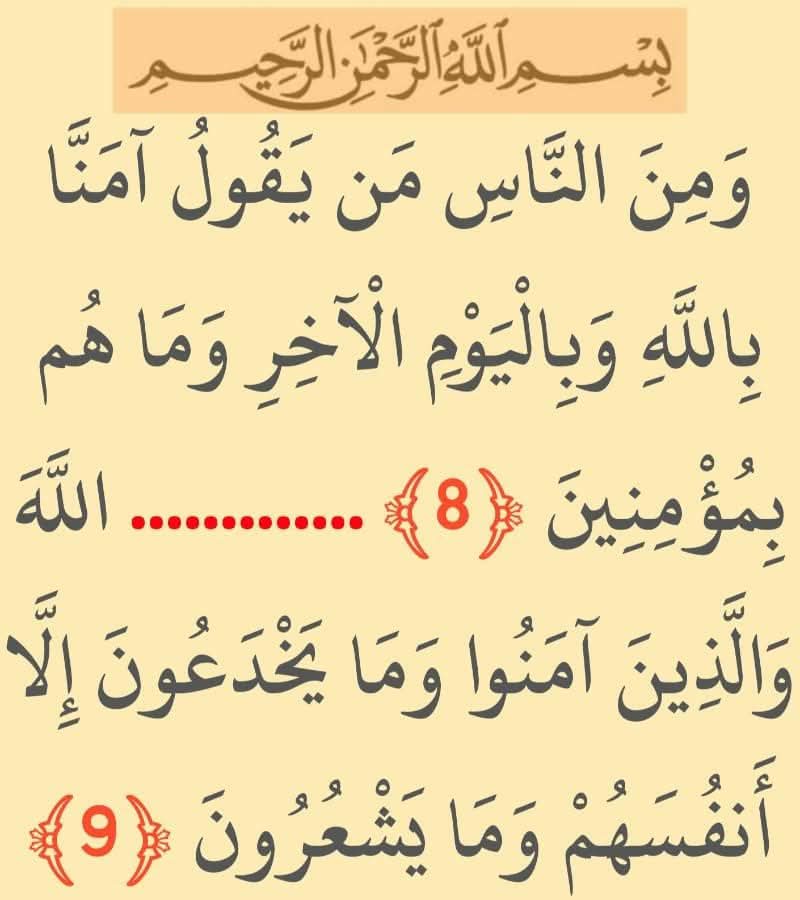 بِسْمِ ٱللَّهِ ٱلرَّحْمَٰنِ ٱلرَّحِيمِ
وَمِنَ النَّاسِ مَن يَقُولُ آمَنَّا
بِاللَّهِ وَبِالْيَوْمِ الْآخِرِ وَمَا هُم
بِمُؤْمِنِينَ ﴿8﴾ ............. اللَّهَ
وَالَّذِينَ آمَنُوا وَمَا يَخْدَعُونَ إِلَّا
أَنفُسَهُمْ وَمَا يَشْعُرُونَ ﴿9﴾